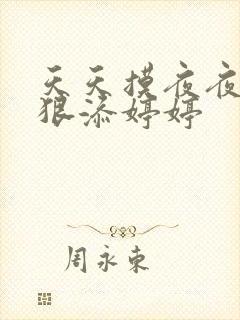 天天摸夜夜
狠添婷婷
周永东